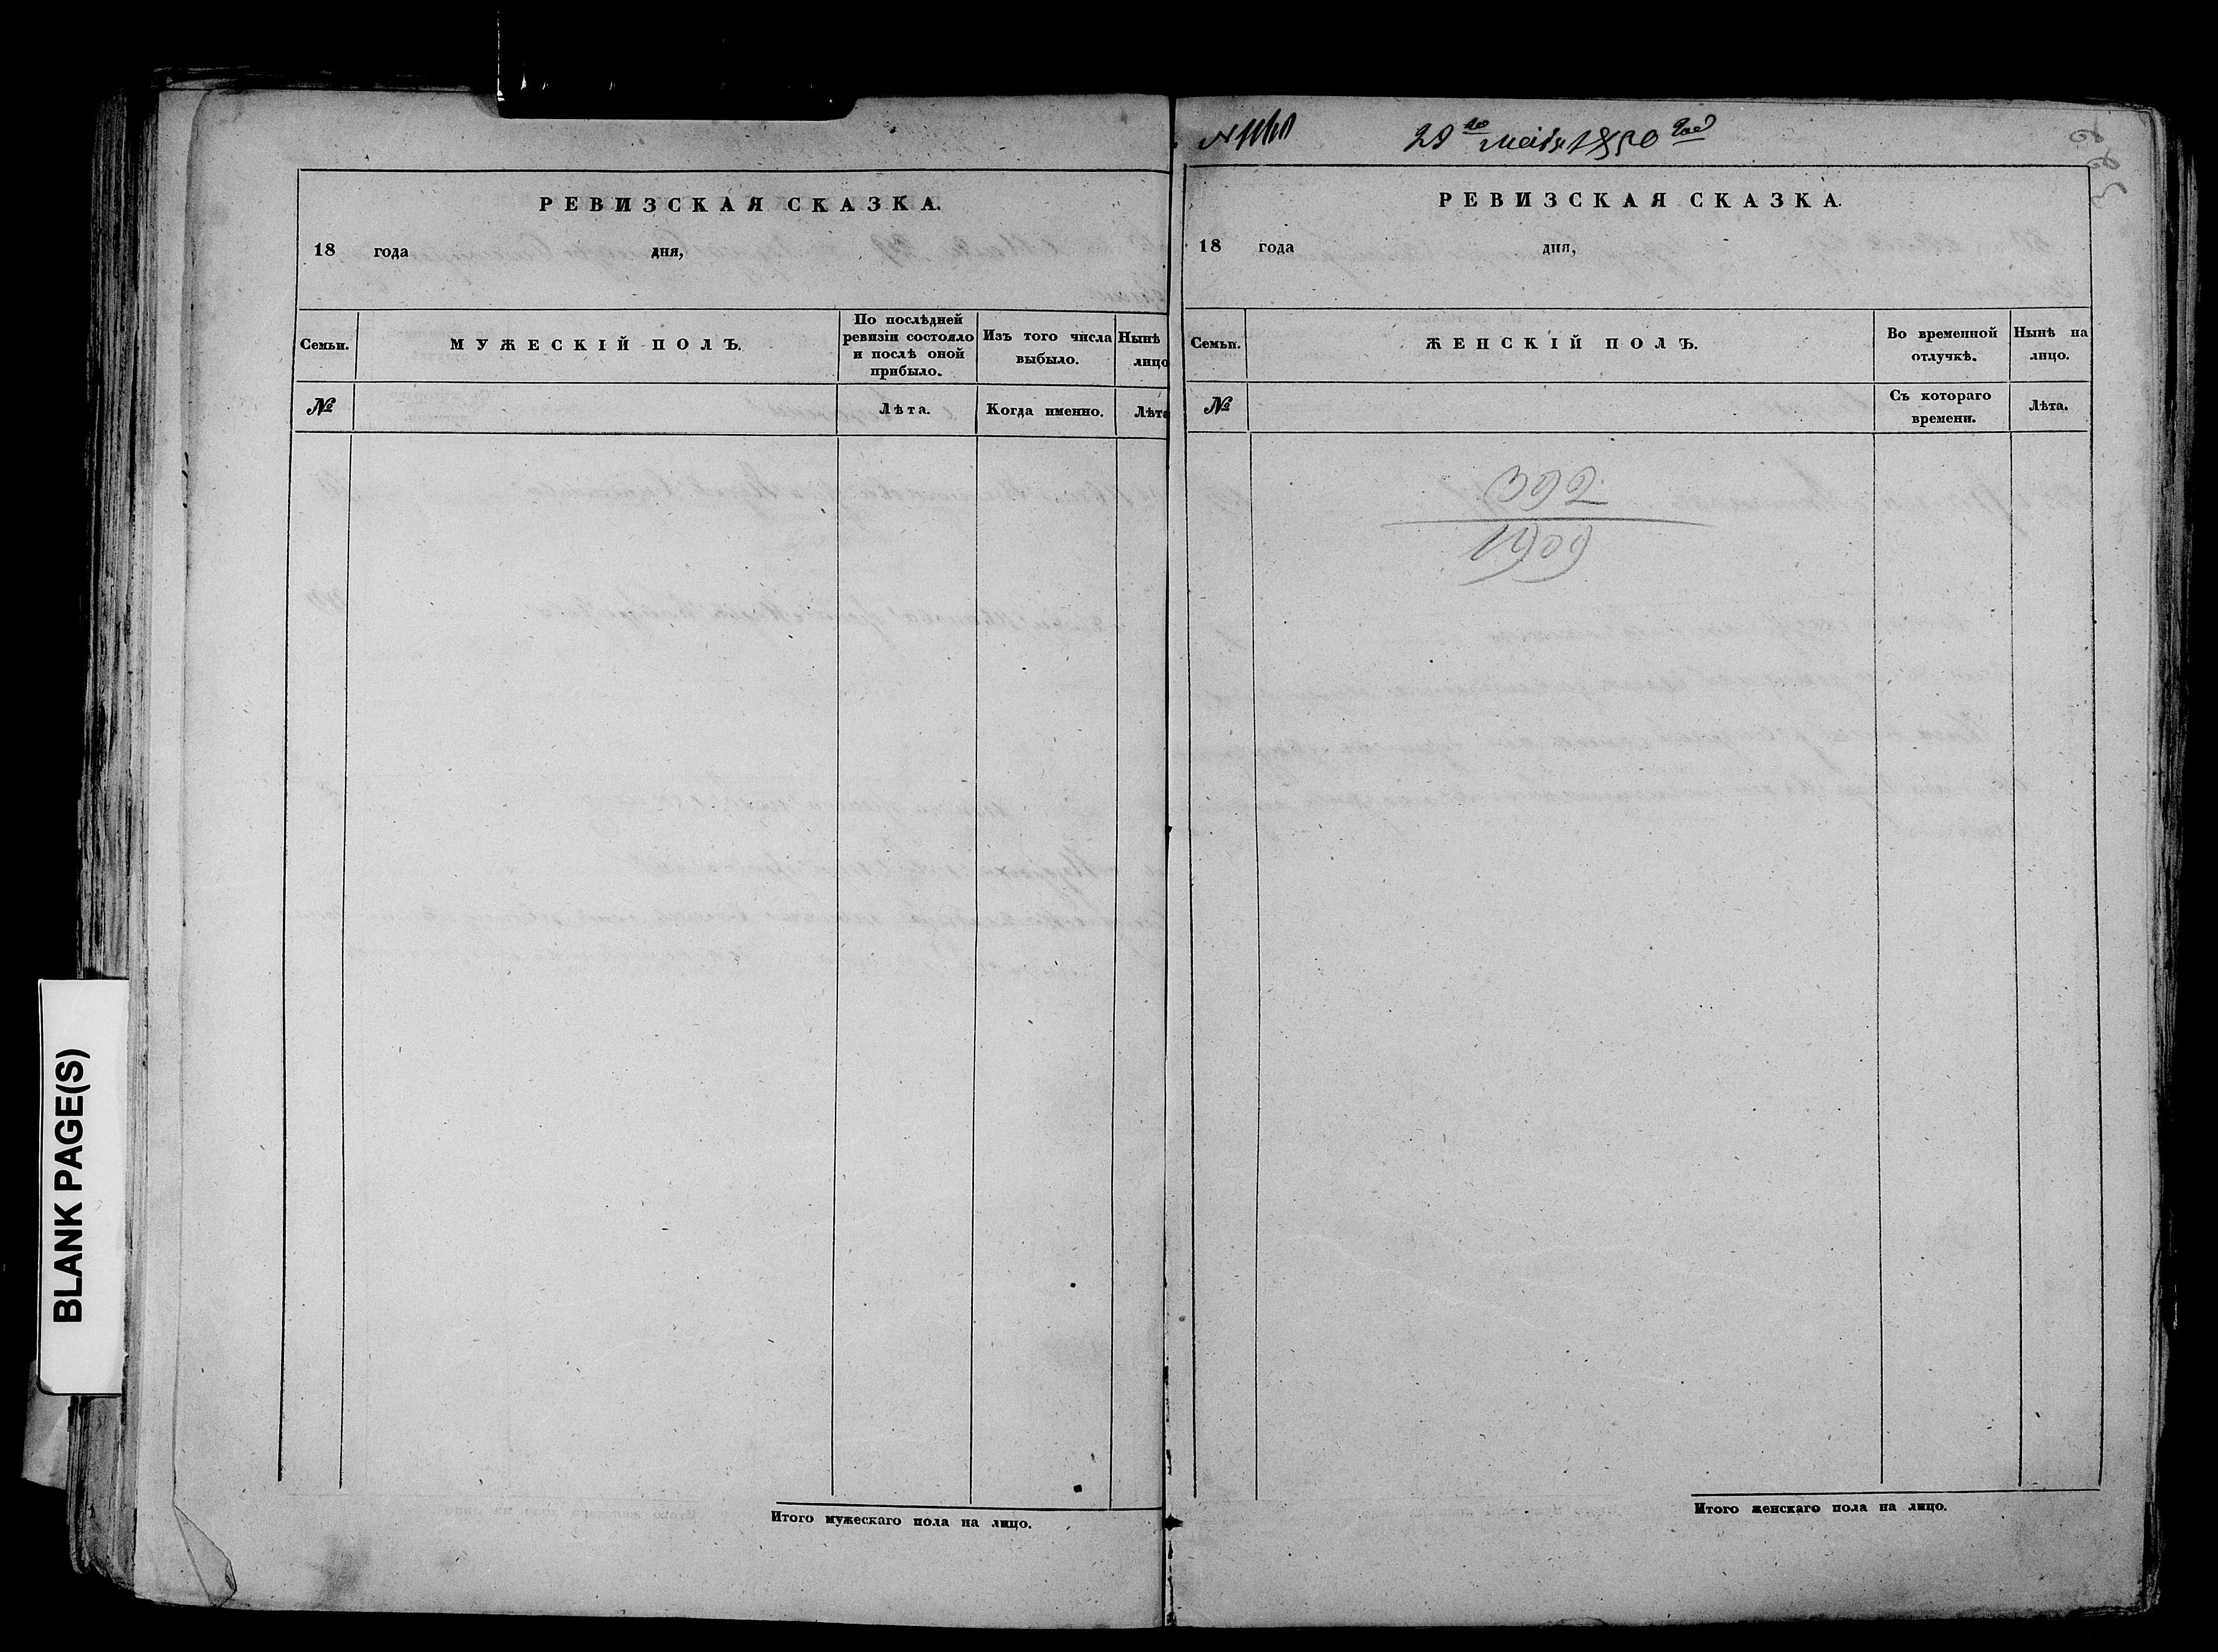 РЕВИЗСКАЯ СКАЗКА.
18 года дня,
Семьи. МУЖЕСКІЙ ПОЛЪ. По послѣдней ревизіи состояло и послѣ оной прибыло. Изъ того числа выбыло. Нынѣ лицо
№ Лѣта. Когда именно. Лѣта
Итого мужескаго пола на лицо.
28го Маія 1850 года
РЕВИЗСКАЯ СКАЗКА.
18 года дня,
Семьи. ЖЕНСКІЙ ПОЛЪ. Во временной отлучкѣ. Нынѣ на лицо.
№ Съ котораго времени. Лѣта.
392
1909
Итого женскаго пола на лицо.
BLANK PAGE(S)